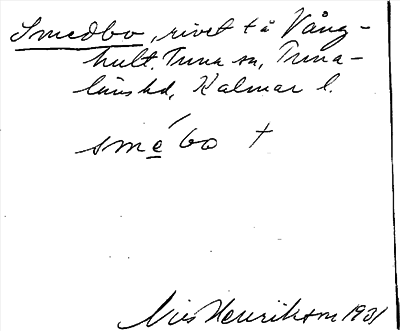 Smedbo, rivet tå Vång-
hult. Tuna sn, Tuna-
läns hd, Kalmar l.
smébo +
Nils Henrikson 1931